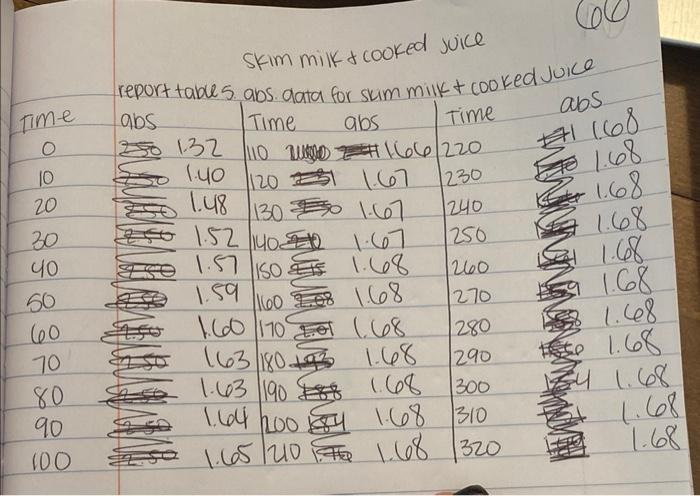 66
skim milk & cooked juice
report table 5. abs. data for skim milk + cooked juice
Time abs Time abs Time abs
0 1.32 110 1.66 220 1.68
10 1.40 120 1.67 230 1.68
20 1.48 130 1.67 240 1.68
30 1.52 140 1.67 250 1.68
40 1.57 150 1.68 260 1.68
50 1.59 160 1.68 270 1.68
60 1.60 170 1.68 280 1.68
70 1.63 180 1.68 290 1.68
80 1.63 190 1.68 300 1.68
90 1.64 200 1.68 310 1.68
100 1.65 210 1.68 320 1.68